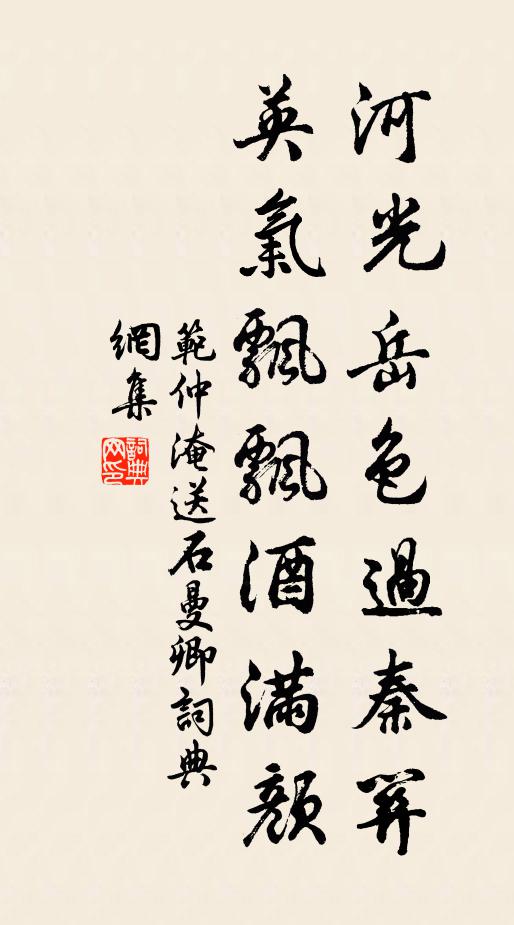 河光岳色過秦關
英氣飄飄酒滿顏
範仲淹送石曼卿詞典
網集
詞典
网印